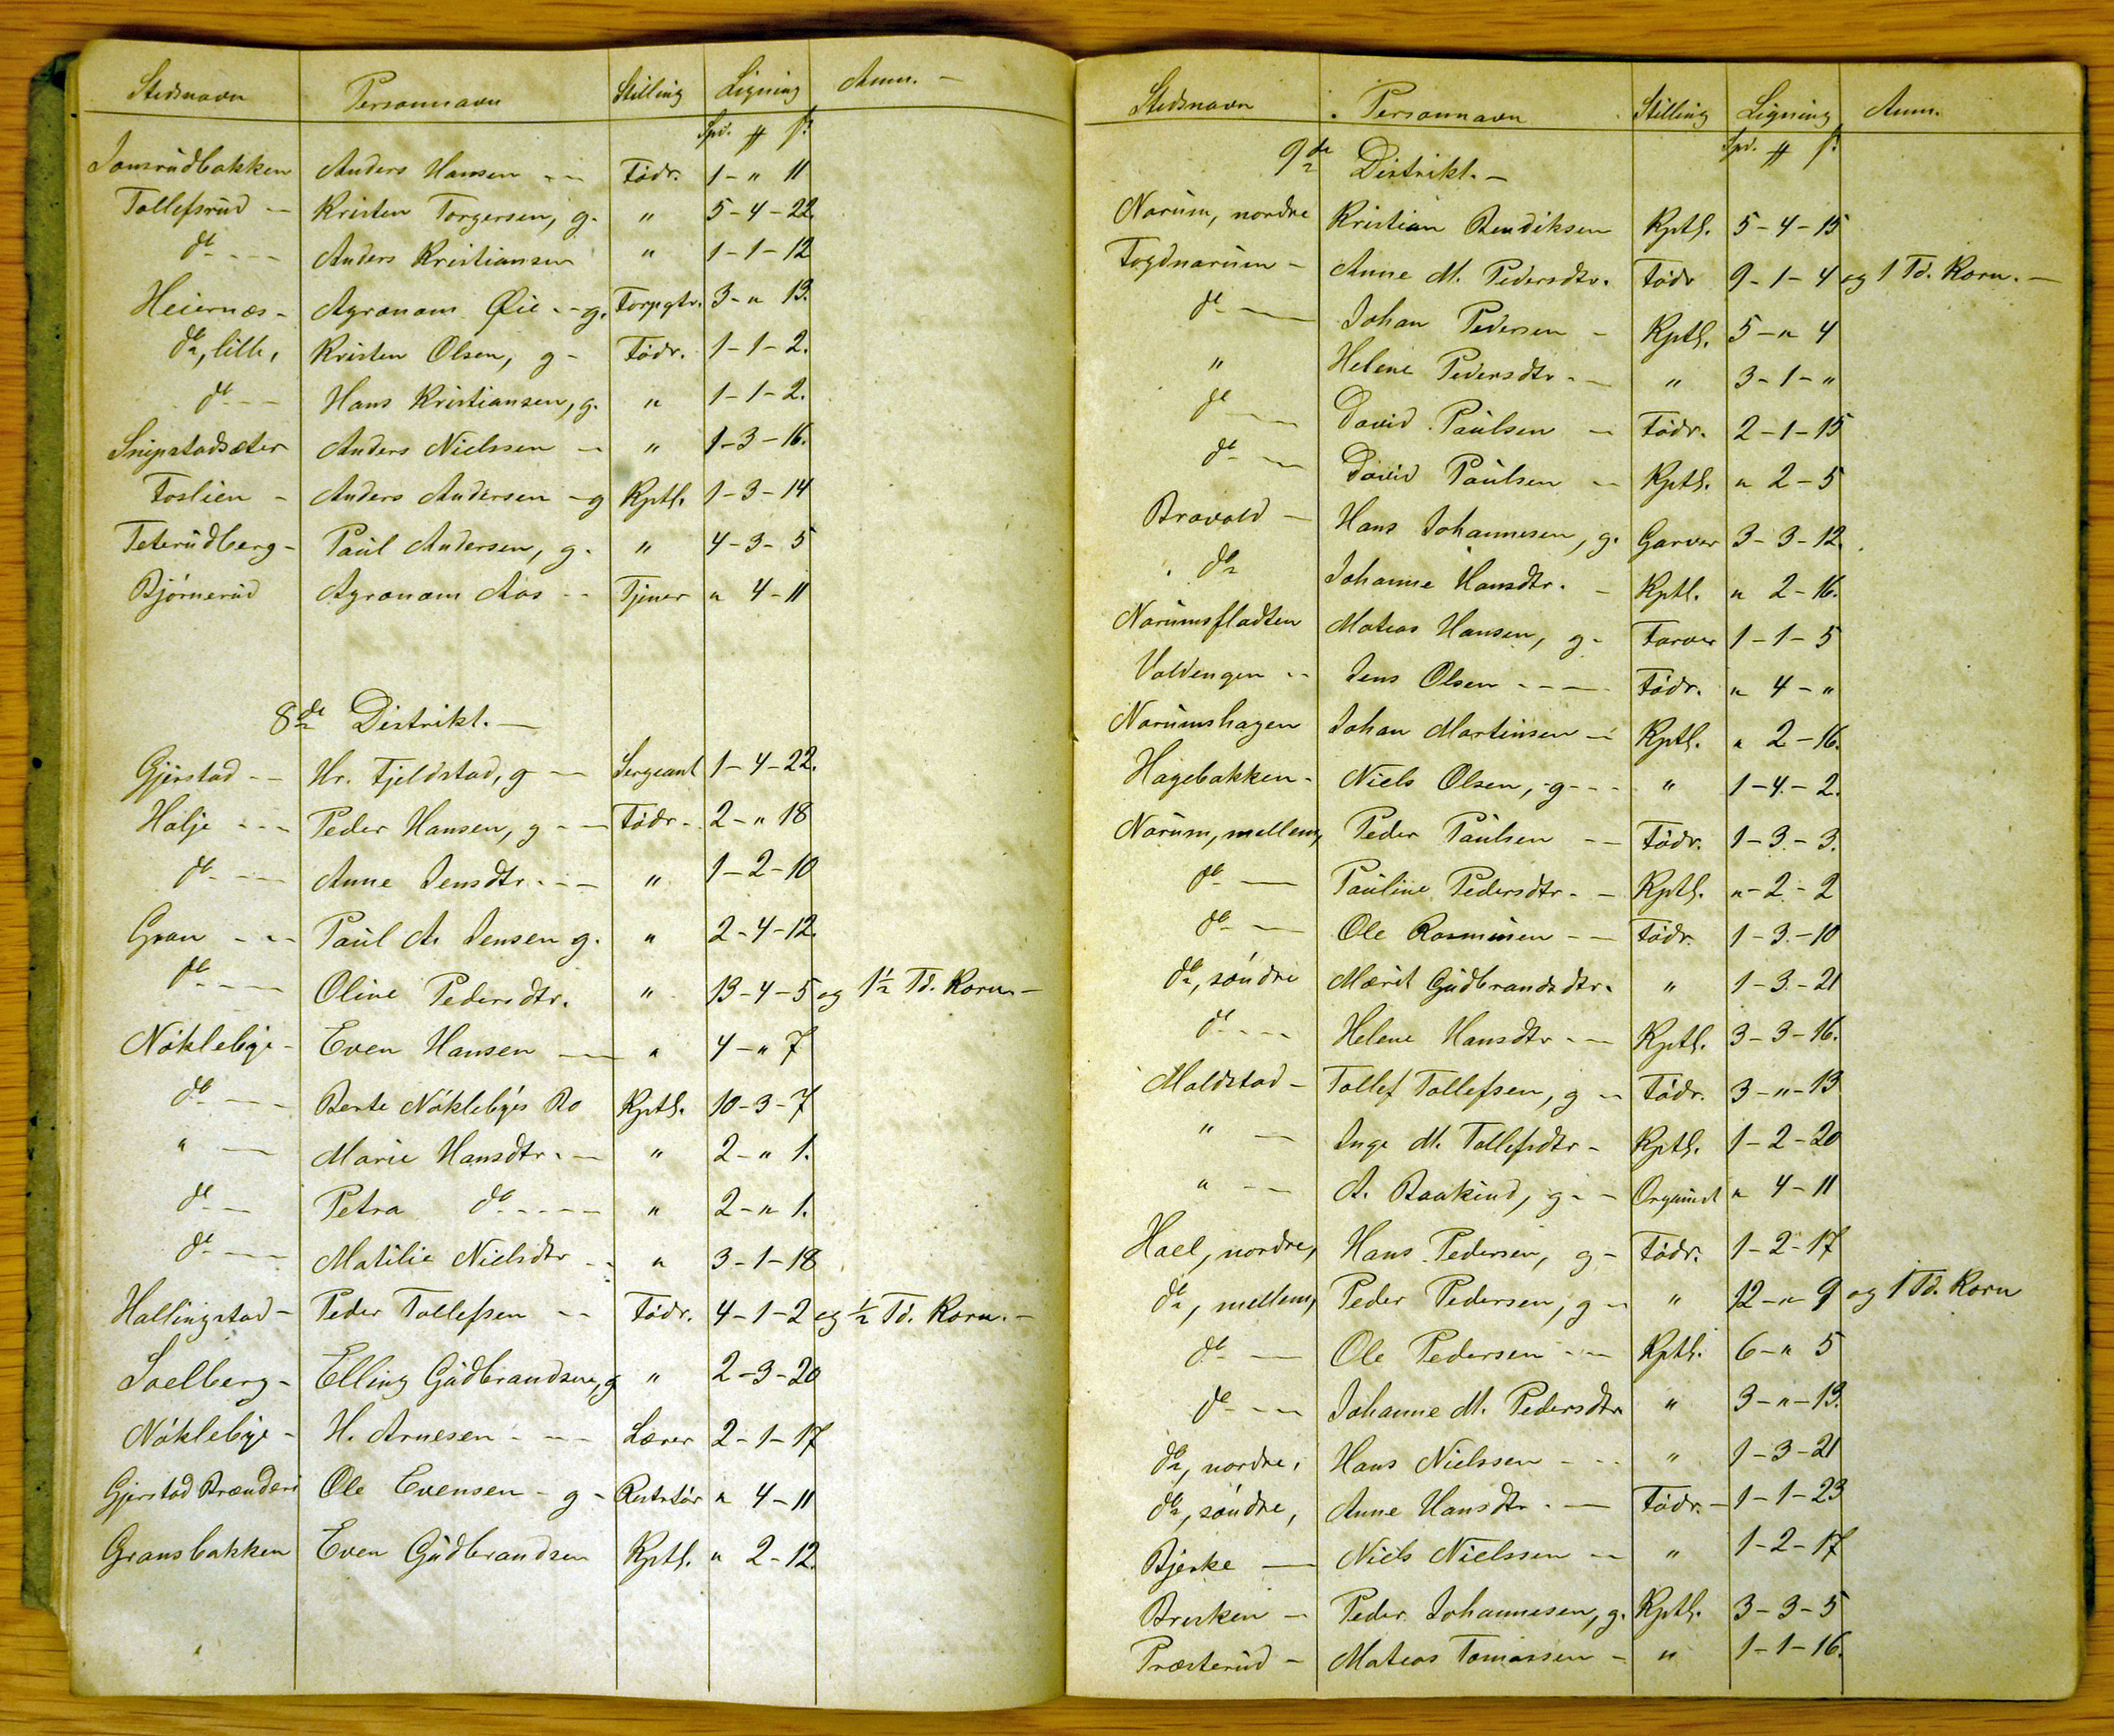 Stedsnavn Personnavn Stilling Ligning Anm. —
Spd. # ß
Jonsrudbakken Anders Hansen — Födr. 1 - " 11
Tollefsrud — Kristen Torgersen, g. " 5 - 4 - 22.
do — Anders Kristiansen " 1 - 1 - 12
Heiernæs - Agronom Øie - g. Forpgtr. 3 - " 13.
do, lille, Kristen Olsen, g - Födr. 1 - 1 - 2.
do — Hans Kristiansen, g. " 1 - 1 - 2.
Snipstadsæter Anders Nielssen — " 1 - 3 - 16.
Foslien - Anders Andersen - g Kptl. 1 - 3 - 14
Teterudberg - Paul Andersen, g. " 4 - 3 - 5
Björnerud Agronom Aas - Tjener " 4 - 11
8de Distrikt. —
Gjerstad — Hr. Fjeldstad, g — Sergeant 1 - 4 - 22.
Halje — Peder Hansen, g — Födr. 2 - " 18
do — Anne Jensdtr. — " 1 - 2 - 10
Gran — Paul A. Jensen g. " 2 - 4 - 12.
do — Oline Pedersdtr. " 13 - 4 - 5 og 1½ Td. Korn. —
Nöklebye - Even Hansen — " 4 - " 7
do — Berte Nöklebyes Bo Kptl. 10 - 3 - 7
" — Marie Hansdtr. — " 2 - " 1.
do — Petra do — " 2 - " 1.
do — Matilie Nielsdtr — " 3 - 1 - 18
Hallingstad - Peder Tollefsen — Födr. 4 - 1 - 2 og ½ Td. Korn. —
Soelberg - Elling Gudbrandsen, g " 2 - 3 - 20
Nöklebye - H. Arnesen — Lærer 2 - 1 - 17
Gjerstad Brænderi Ole Evensen - g - " 4 - 11
Gransbakken Even Gudbrandsen Kptl. " 2 - 12.
Stedsnavn Personnavn Stilling Ligning Anm.
Spd. # ß
9de Distrikt. —
Narum, nordre Kristian Bendiksen Kptl. 5 - 4 - 15
Fogdnarum - Anne M. Pedersdtr. Födr 9 - 1 - 4 og 1 Td. Korn. —
do — Johan Pedersen - Kptl. 5 - " 4
" Helene Pedersdtr. — " 3 - 1 - "
do — David Paulsen — Födr. 2 - 1 - 15
do — David Paulsen — Kptl. " 2 - 5
Bravold — Hans Johannesen, g. Garver 3 - 3 - 12.
do Johanne Hansdtr. - Kptl. " 2 - 16.
Narumsfladten Mateas Hansen, g - Farver 1 - 1 - 5
Voldengen — Jens Olsen — Födr. " 4 - "
Narumshagen Johan Martinsen — Kptl. " 2 - 16.
Hagebakken - Niels Olsen, g — " 1 - 4 - 2.
Narum, mellem, Peder Paulsen — Födr. 1 - 3 - 3.
do — Pauline Pedersdtr. - Kptl. " - 2 - 2
do — Ole Rasmusen — Födr. 1 - 3 - 10
do, söndre Marit Gudbrandsdtr. " 1 - 3 - 21
do — Helene Hansdtr — Kptl. 3 - 3 - 16.
Maldstad - Tollef Tollefsen, g — Födr. 3 - " - 13
" — Inge M. Tollefsdtr - Kptl. 1 - 2 - 20
" — A. g - - " 4 - 11
Hael, nordre, Hans Pedersen, g - Födr. 1 - 2 - 17
do, mellem, Peder Pedersen, g — " 12 - " 9 og 1 Td. Korn
do — Ole Pedersen — Kptl. 6 - " 5
do — Johanne M. Pedersdtr " 3 - " - 13.
do, nordre, Hans Nielssen — " 1 - 3 - 21
do, söndre, Anne Hansdtr. — Födr. - 1 - 1 - 23
Bjerke — Niels Nielssen — " 1 - 2 - 17
Bresken — Peder Johannesen, g. Kptl. 3 - 3 - 5
Præsterud - Mateas Tomassen - " 1 - 1 - 16.